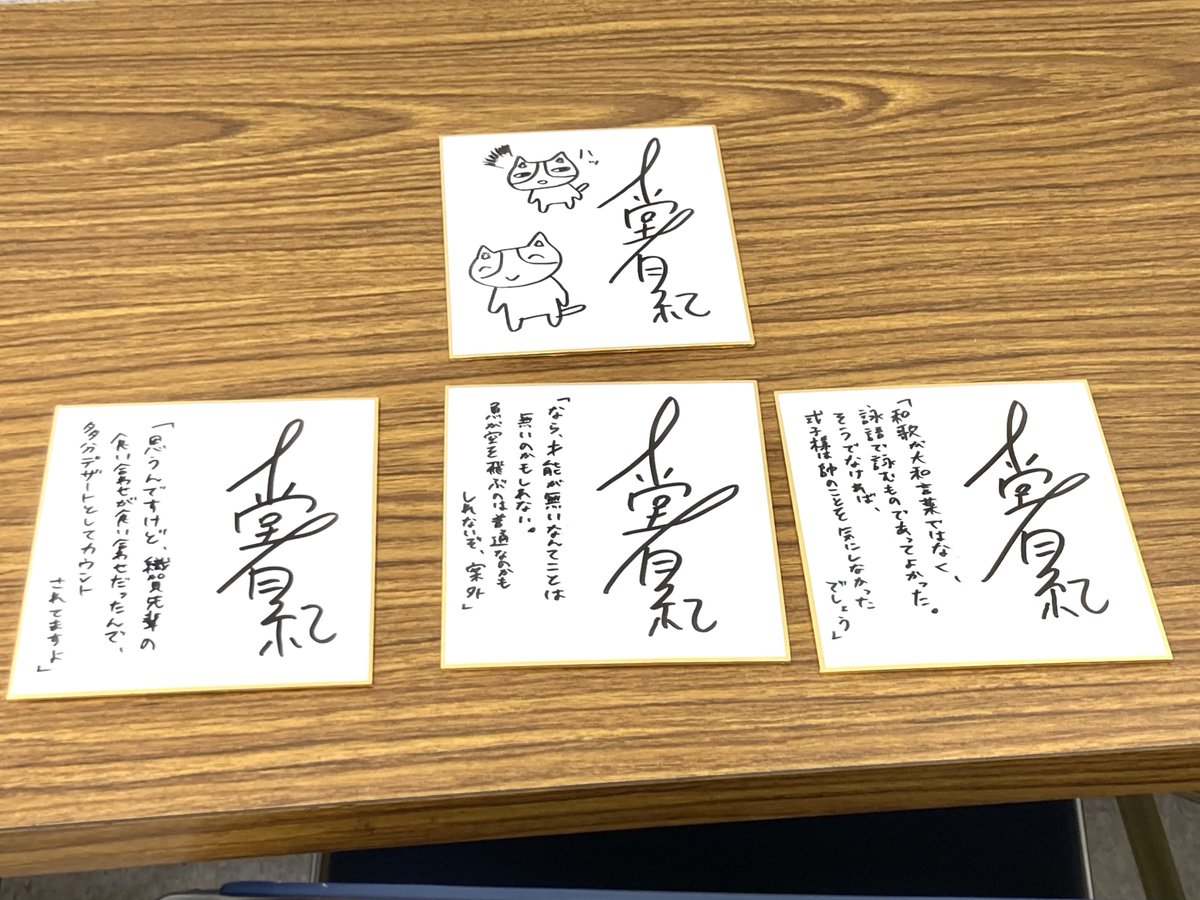 堂有紀
ハッ
堂有紀
「思うんですけど、織賀先輩の
食い合わせが食い合わせだったんで、
多分デザートとしてカウント
されてますよ」
堂有紀
「なら、才能が無いなんてことは
無いのかもしれない。
魚が空を飛ぶのは普通なのかも
しれないぞ、案外」
堂有紀
「和歌が大和言葉ではなく、
詠語で詠むものであってよかった。
そうでなければ、
式子様は帥のことを気にしなかった
でしょう」